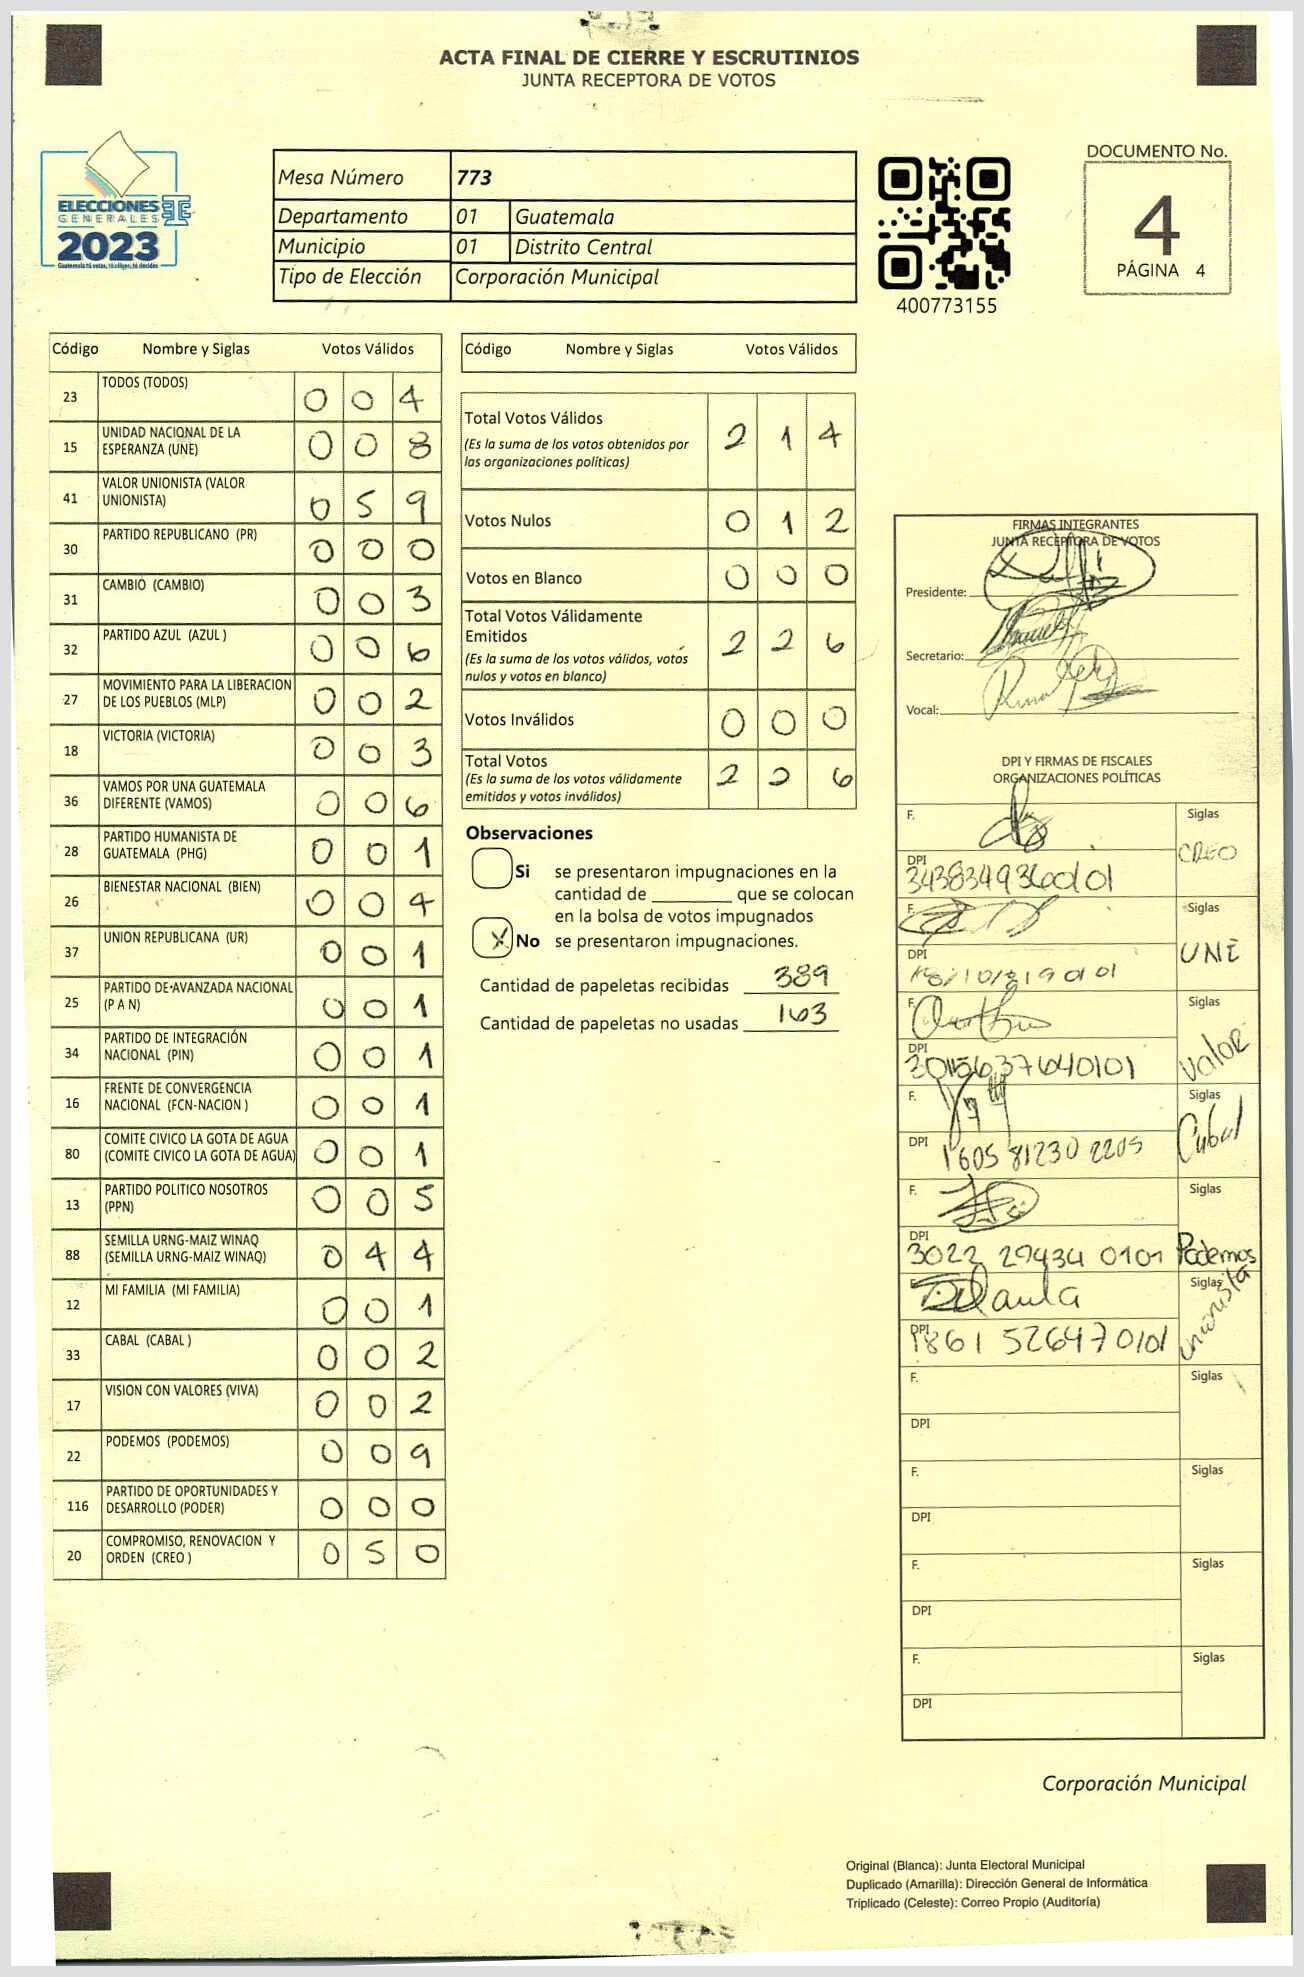 ACTA FINAL DE CIERRE Y ESCRUTINIOS
JUNTA RECEPTORA DE VOTOS
ELECCIONES
GENERALES
2023
Guatemala tú votas, tú eliges, tú decides
Mesa Número 773
Departamento 01 Guatemala
Municipio 01 Distrito Central
Tipo de Elección Corporación Municipal
400773155
DOCUMENTO No.
4
PÁGINA 4
Código Nombre y Siglas Votos Válidos
23 TODOS (TODOS) 0 0 4
15 UNIDAD NACIONAL DE LA
ESPERANZA (UNE) 0 0 8
41 VALOR UNIONISTA (VALOR
UNIONISTA) 0 5 9
30 PARTIDO REPUBLICANO (PR) 0 0 0
31 CAMBIO (CAMBIO) 0 0 3
32 PARTIDO AZUL (AZUL ) 0 0 6
27 MOVIMIENTO PARA LA LIBERACION
DE LOS PUEBLOS (MLP) 0 0 2
18 VICTORIA (VICTORIA) 0 0 3
36 VAMOS POR UNA GUATEMALA
DIFERENTE (VAMOS) 0 0 6
28 PARTIDO HUMANISTA DE
GUATEMALA (PHG) 0 0 1
26 BIENESTAR NACIONAL (BIEN) 0 0 4
37 UNION REPUBLICANA (UR) 0 0 1
25 PARTIDO DE AVANZADA NACIONAL
(P A N) 0 0 1
34 PARTIDO DE INTEGRACIÓN
NACIONAL (PIN) 0 0 1
16 FRENTE DE CONVERGENCIA
NACIONAL (FCN-NACION ) 0 0 1
80 COMITE CIVICO LA GOTA DE AGUA
(COMITE CIVICO LA GOTA DE AGUA) 0 0 1
13 PARTIDO POLITICO NOSOTROS
(PPN) 0 0 5
88 SEMILLA URNG-MAIZ WINAQ
(SEMILLA URNG-MAIZ WINAQ) 0 4 4
12 MI FAMILIA (MI FAMILIA) 0 0 1
33 CABAL (CABAL ) 0 0 2
17 VISION CON VALORES (VIVA) 0 0 2
22 PODEMOS (PODEMOS) 0 0 9
116 PARTIDO DE OPORTUNIDADES Y
DESARROLLO (PODER) 0 0 0
20 COMPROMISO, RENOVACION Y
ORDEN (CREO ) 0 5 0
Código Nombre y Siglas Votos Válidos
Total Votos Válidos 2 1 4
(Es la suma de los votos obtenidos por
las organizaciones políticas)
Votos Nulos 0 1 2
Votos en Blanco 0 0 0
Total Votos Válidamente
Emitidos 2 2 6
(Es la suma de los votos válidos, votos
nulos y votos en blanco)
Votos Inválidos 0 0 0
Total Votos 2 2 6
(Es la suma de los votos válidamente
emitidos y votos inválidos)
Observaciones
Si se presentaron impugnaciones en la
cantidad de ________ que se colocan
en la bolsa de votos impugnados
X No se presentaron impugnaciones.
Cantidad de papeletas recibidas 389
Cantidad de papeletas no usadas 163
FIRMAS INTEGRANTES
JUNTA RECEPTORA DE VOTOS
Presidente:
Secretario:
Vocal:
DPI Y FIRMAS DE FISCALES
ORGANIZACIONES POLÍTICAS
F. Siglas
CREO
DPI 3438349360101
F. Siglas
UNE
DPI
F. Siglas
Valor
DPI
F. Siglas
Cabal
DPI 1605 81230 2205
F. Siglas
DPI
3022 29434 0101 Podemos
F. Siglas
unionista
DPI
1861 52647 0101
F. Siglas
DPI
F. Siglas
DPI
F. Siglas
DPI
F. Siglas
DPI
Corporación Municipal
Original (Blanca): Junta Electoral Municipal
Duplicado (Amarilla): Dirección General de Informática
Triplicado (Celeste): Correo Propio (Auditoría)